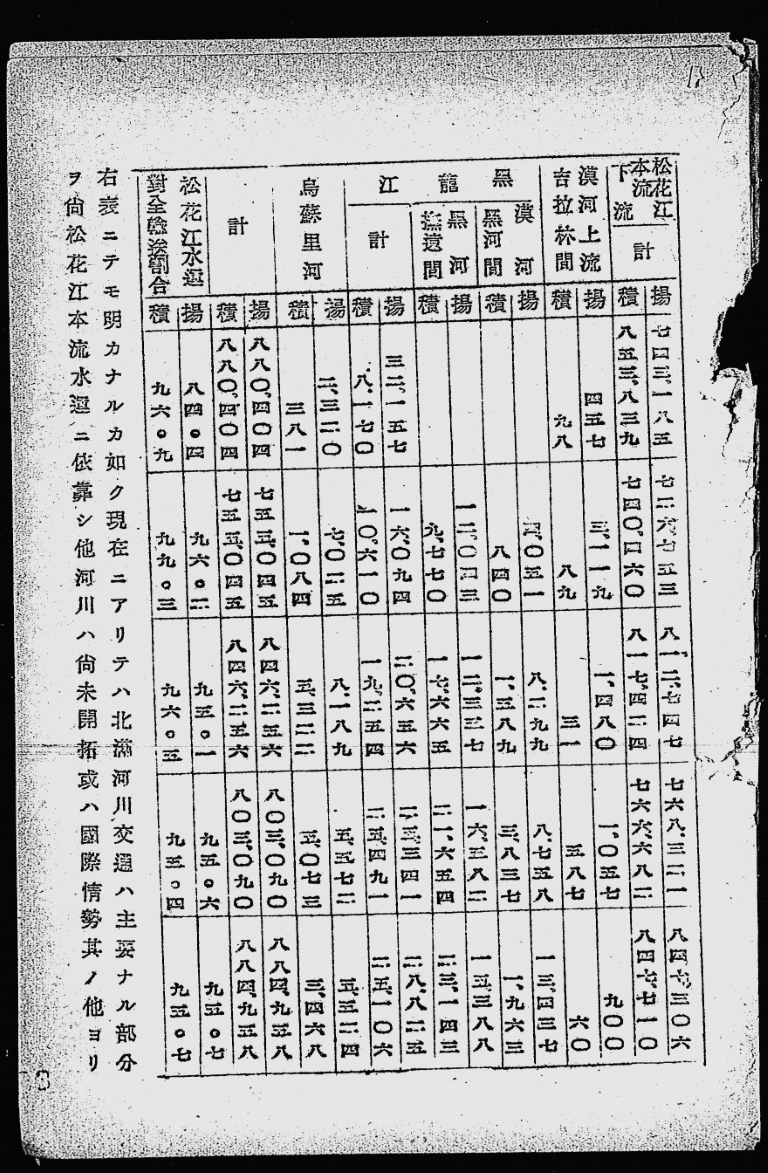 松花江本流下流
計
揚 七四三、一八五 七二六、七五三 八一二、七四七 七六八、三二一 八四七、三〇六
積 八五三、八三九 七四〇、四六〇 八一七、四二四 七六六、六八二 八四七、七一〇
漠河上流
吉拉林間
揚 四五七 三、一一九 一、四八〇 一、〇五七 九〇〇
積 九八 八九 三一 五八七 六〇
黑龍江
漠河
黑河間
揚 四、〇五一 八、二九九 八、七五八 一三、四三七
積 八四〇 一、三八九 三、八三七 一、九六三
黑河
撫遠間
揚 一二、〇四三 一二、三三七 一六、五八二 一五、三八八
積 九、七七〇 一七、六六五 二一、六五四 二三、一四三
計
揚 三二、一五七 一六、〇九四 二〇、六五六 二五、三四一 二八、八二五
積 八、一七〇 一〇、六一〇 一九、二五四 二五、四九一 二五、一〇六
烏蘇里河
揚 二、三二〇 七、〇二五 八、一八九 五、五七二 五、五二四
積 三八一 一、〇八四 五、三二二 五、〇七三 三、四六八
計
揚 八八〇、四〇四 七五三、〇四五 八四六、二五六 八〇三、〇九〇 八八四、九五八
積 八八〇、四〇四 七五三、〇四五 八四六、二五六 八〇三、〇九〇 八八四、九五八
松花江水運
對全輸送割合
揚 八四。四 九六。二 九五。一 九五。六 九五。七
積 九六。九 九九。三 九六。五 九五。四 九五。七
右表ニテモ明カナルカ如ク現在ニアリテハ北滿河川交通ハ主要ナル部分
ヲ尙松花江本流水運ニ依靠シ他河川ハ尙未開拓或ハ國際情勢其ノ他ヨリ